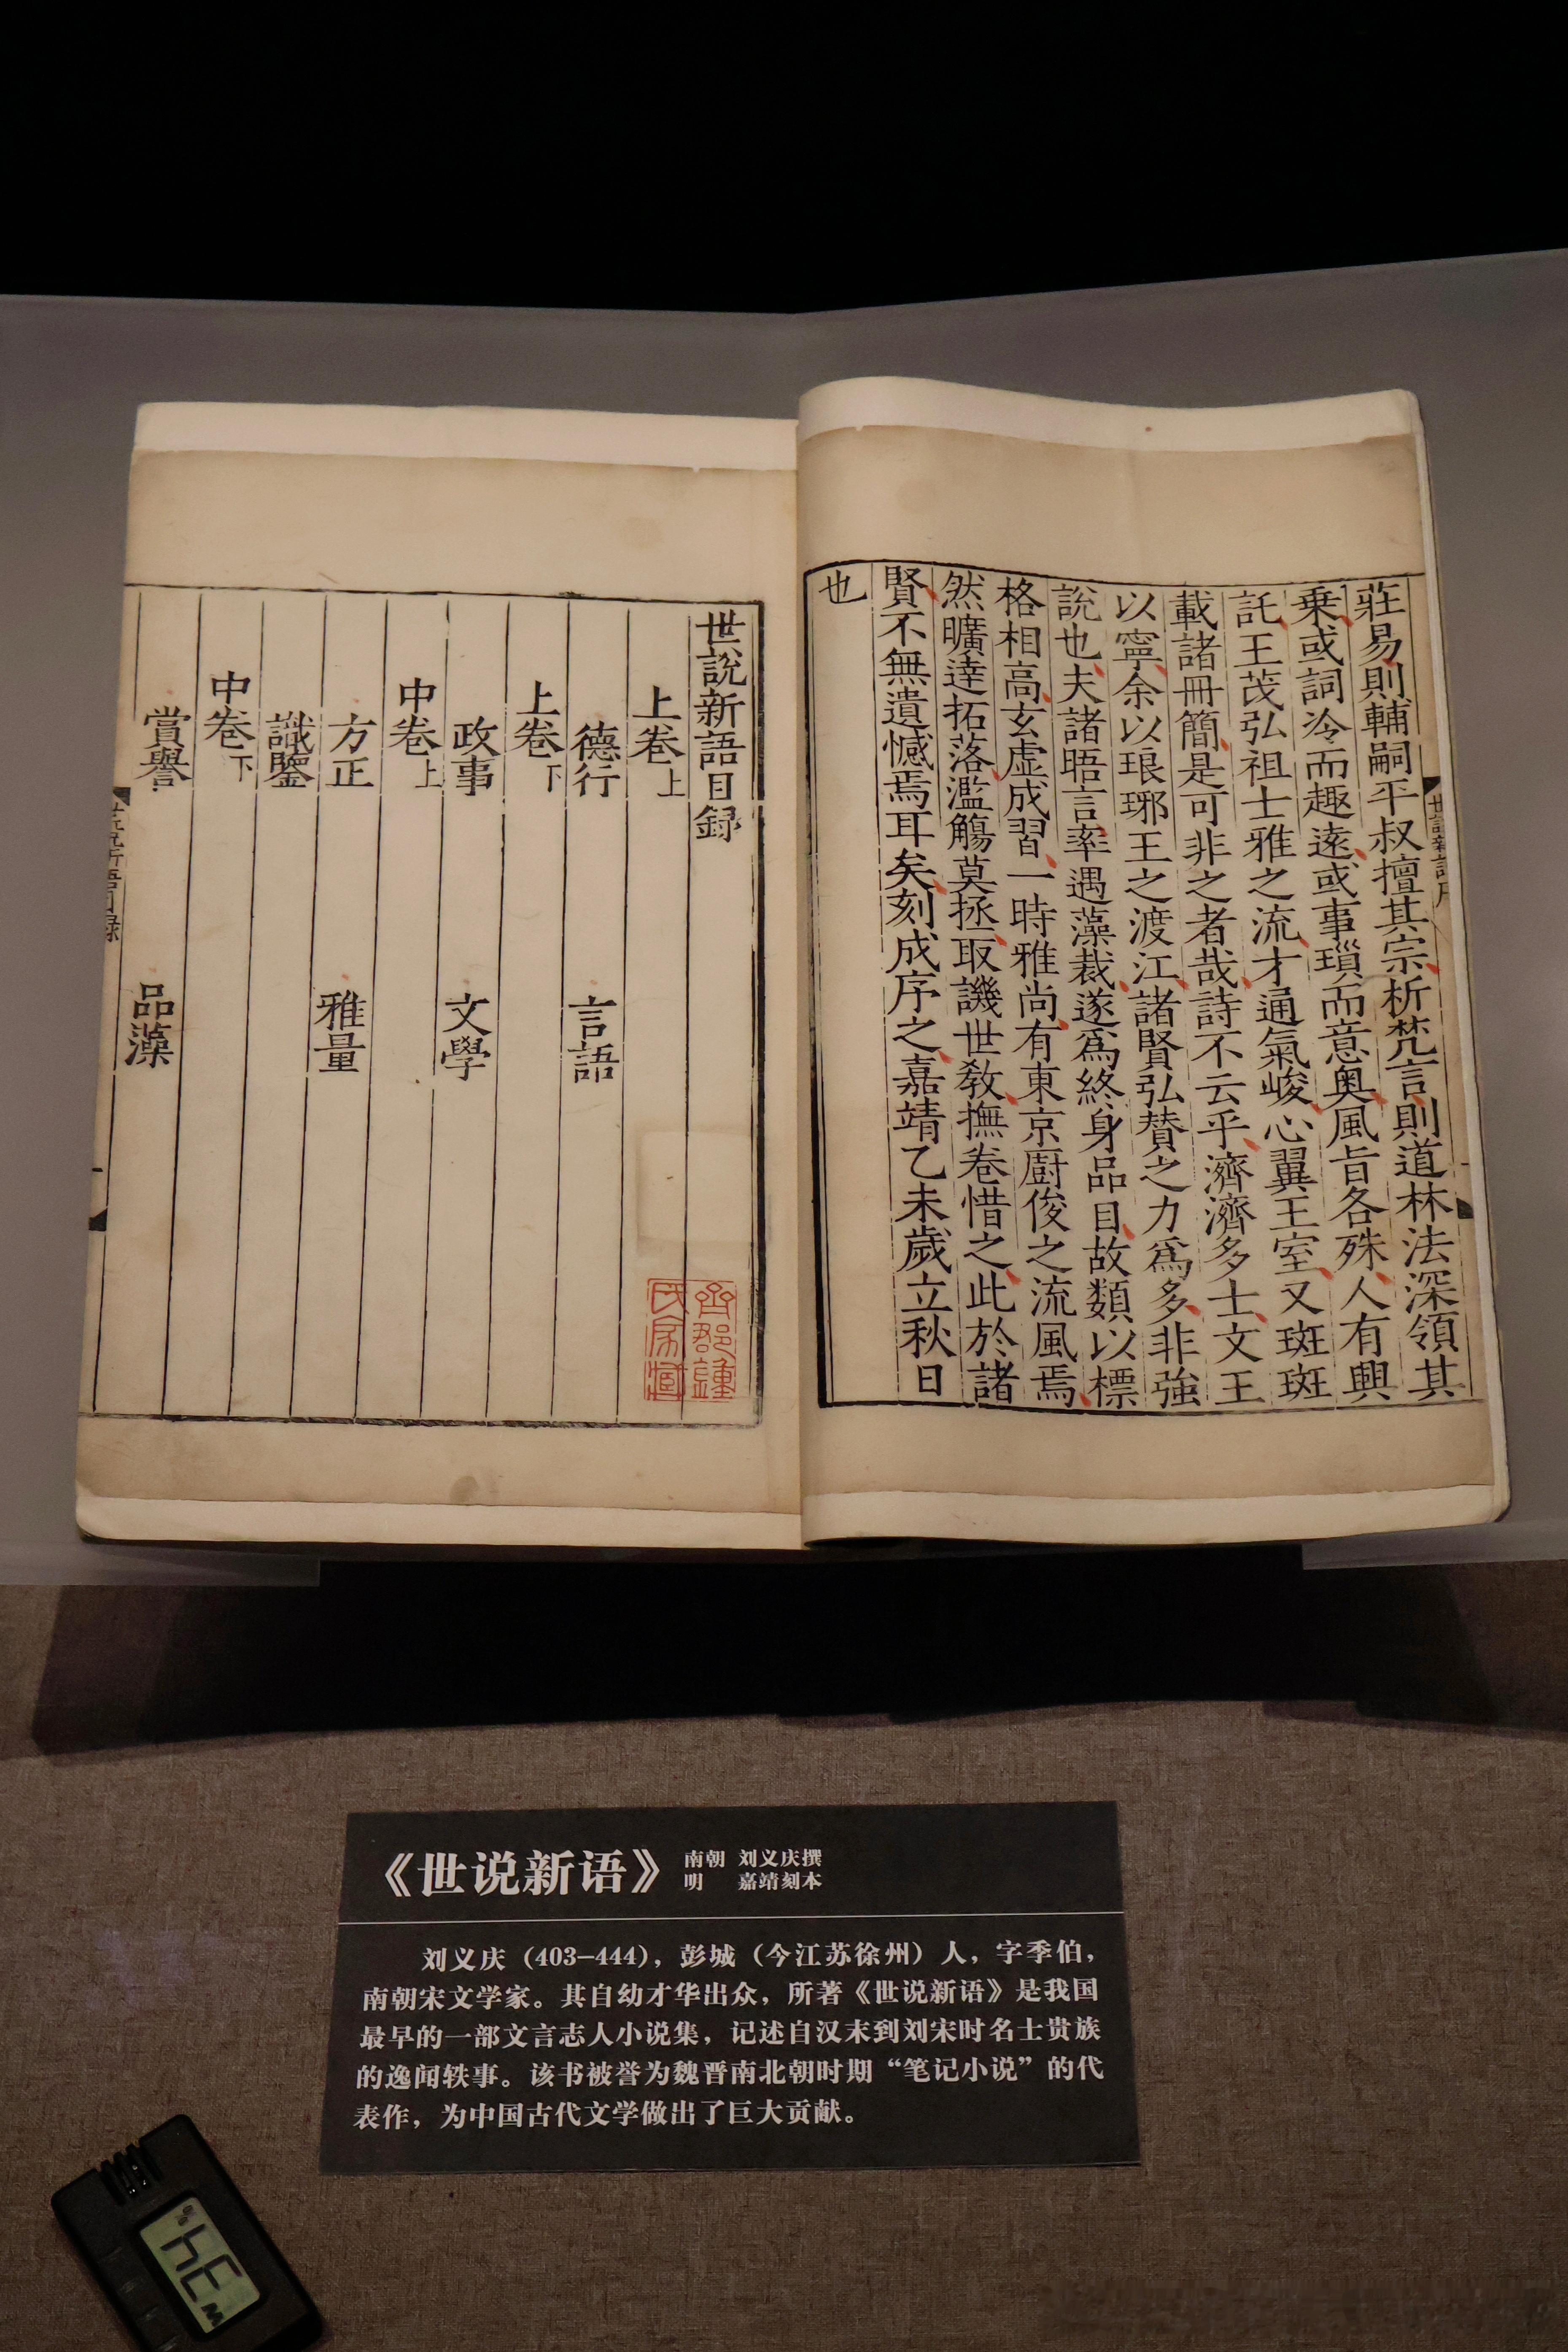 莊易則輔嗣平叔擅其宗析梵言則道林法深領其
乗或詞冷而趣遠或事瑣而意奥風旨各殊人有興
託王茂弘祖士雅之流才通氣峻心翼王室又斑斑
載諸冊簡是可非之者哉詩不云乎濟濟多士文王
以寧余以琅琊王之渡江諸賢弘賛之力爲多非強
說也夫諸晤言率遇藻裁遂爲終身品目故類以標
格相高玄虛成習一時雅尚有東京廚俊之流風焉
然曠達拓落濫觴莫拯取譏世教撫卷惜之此於諸
賢不無遺憾焉耳矣刻成序之嘉靖乙未歲立秋日
也
世說新語目録
上卷上
德行 言語
上卷下
政事 文學
中卷上
方正 雅量
識鑒
中卷下
賞譽 品藻
世說新語目録
《世说新语》
南朝 刘义庆撰
明 嘉靖刻本
刘义庆（403-444），彭城（今江苏徐州）人，字季伯，
南朝宋文学家。其自幼才华出众，所著《世说新语》是我国
最早的一部文言志人小说集，记述自汉末到刘宋时名士贵族
的逸闻轶事。该书被誉为魏晋南北朝时期“笔记小说”的代
表作，为中国古代文学做出了巨大贡献。